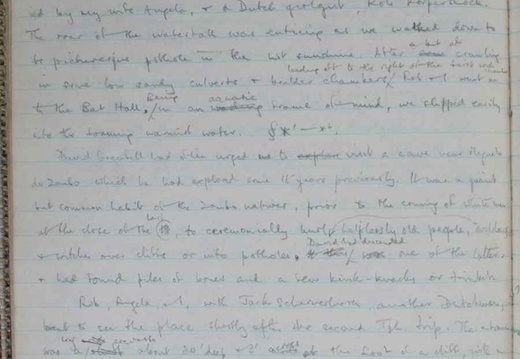 ed by my wife Angela, & a Dutch geologist, Rob
The roar of the waterfall was enticing as we walked down to
te picturesque pothole in the hot sunshine. After a bit of crawling
in some low sandy culverts & boulder chambers, leading off to the right of the Rob & I went on
to the Bat Hall. Being in an aquatic frame of mind, we slipped easily
into the foaming warmish water.
David had often urged me to visit a cave near
do Zombo which he had explored some 15 years previously. It was a quaint
but common habit of the Zombo natives, prior to the coming of
at the close of the last, to ceremonially hurl helplessly old people,
& witches over cliffs or into potholes. David had descended one of the latter
& had found piles of bones and a few knick-knacks or
Rob, Angela & I, with Jack another Dutchman,
went to see the place shortly after the second trip. The
was about 30' deep & 2' at the foot of a cliff with a